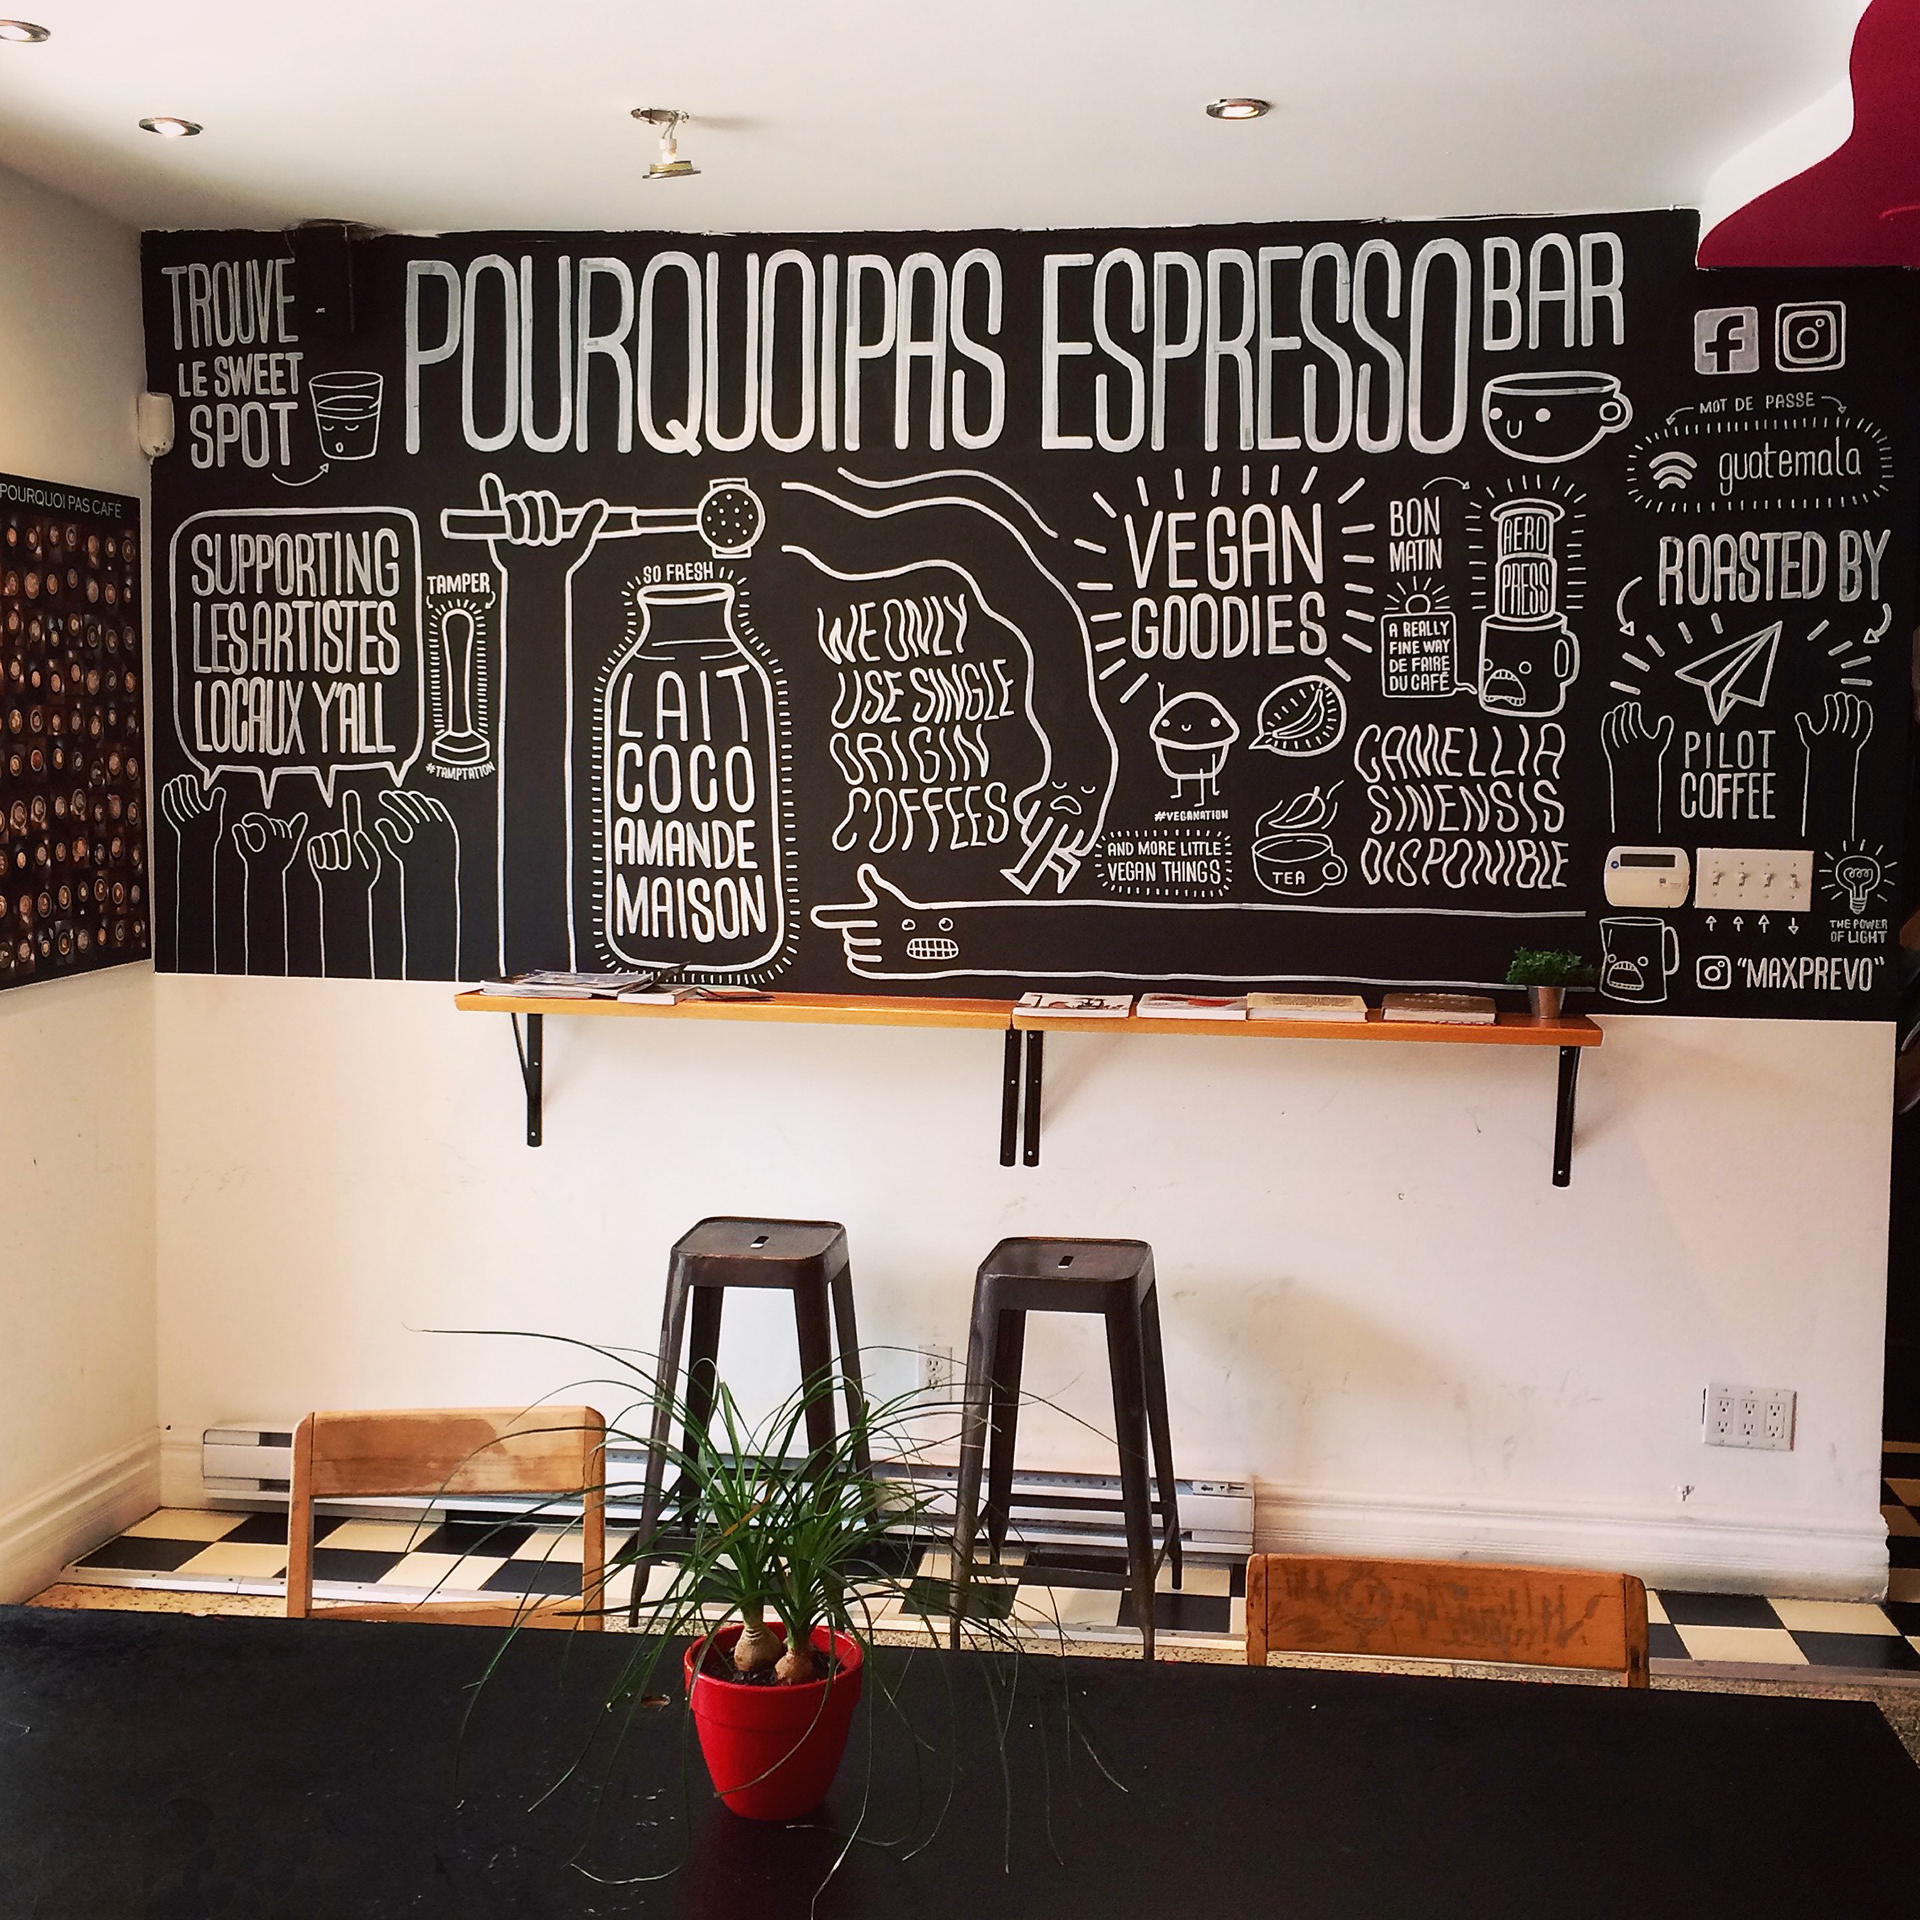 TROUVE
LE SWEET
SPOT
POURQUOIPAS ESPRESSO BAR
POURQUOI PAS CAFÉ
SUPPORTING
LES ARTISTES
LOCAUX Y'ALL
TAMPER
#TAMPTATION
SO FRESH
LAIT
COCO
AMANDE
MAISON
WE ONLY
USE SINGLE
ORIGIN
COFFEES
VEGAN
GOODIES
#VEGANATION
AND MORE LITTLE
VEGAN THINGS
TEA
BON
MATIN
A REALLY
FINE WAY
DE FAIRE
DU CAFÉ
AERO
PRESS
CAMELLIA
SINENSIS
DISPONIBLE
MOT DE PASSE
guatemala
ROASTED BY
PILOT
COFFEE
THE POWER
OF LIGHT
"MAXPREVO"